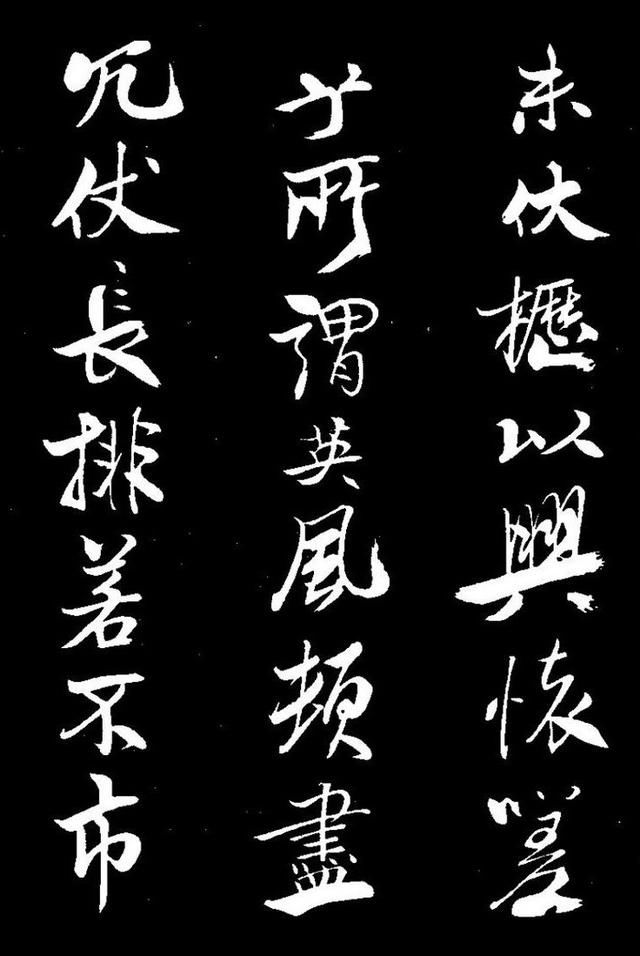 未伏櫪以興懷嗟
乎所謂英風頓盡
冗仗長排若不市